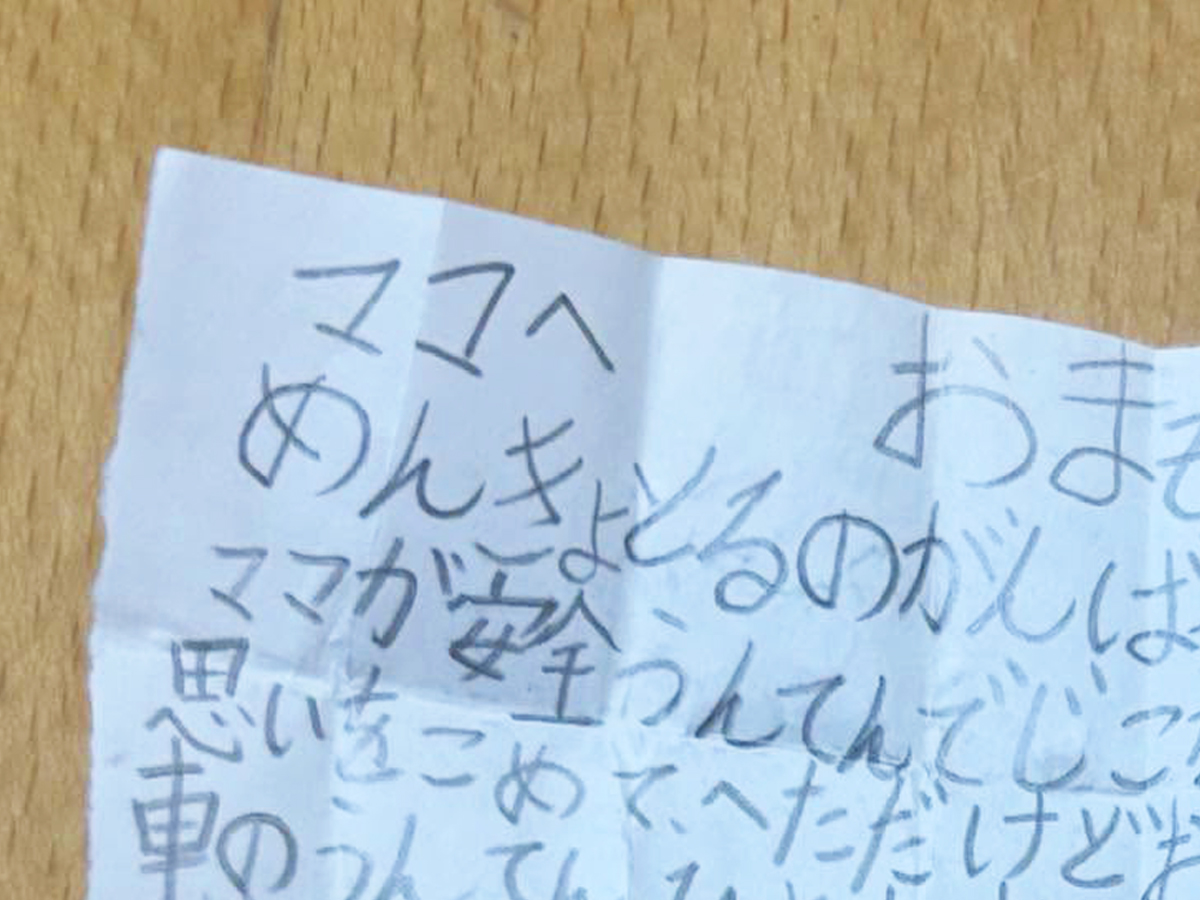 ママへ
おま
めんきょとるのがんば
ママが安全うんてんでじこ
思いをこめて、へただけどお
車のうんてん